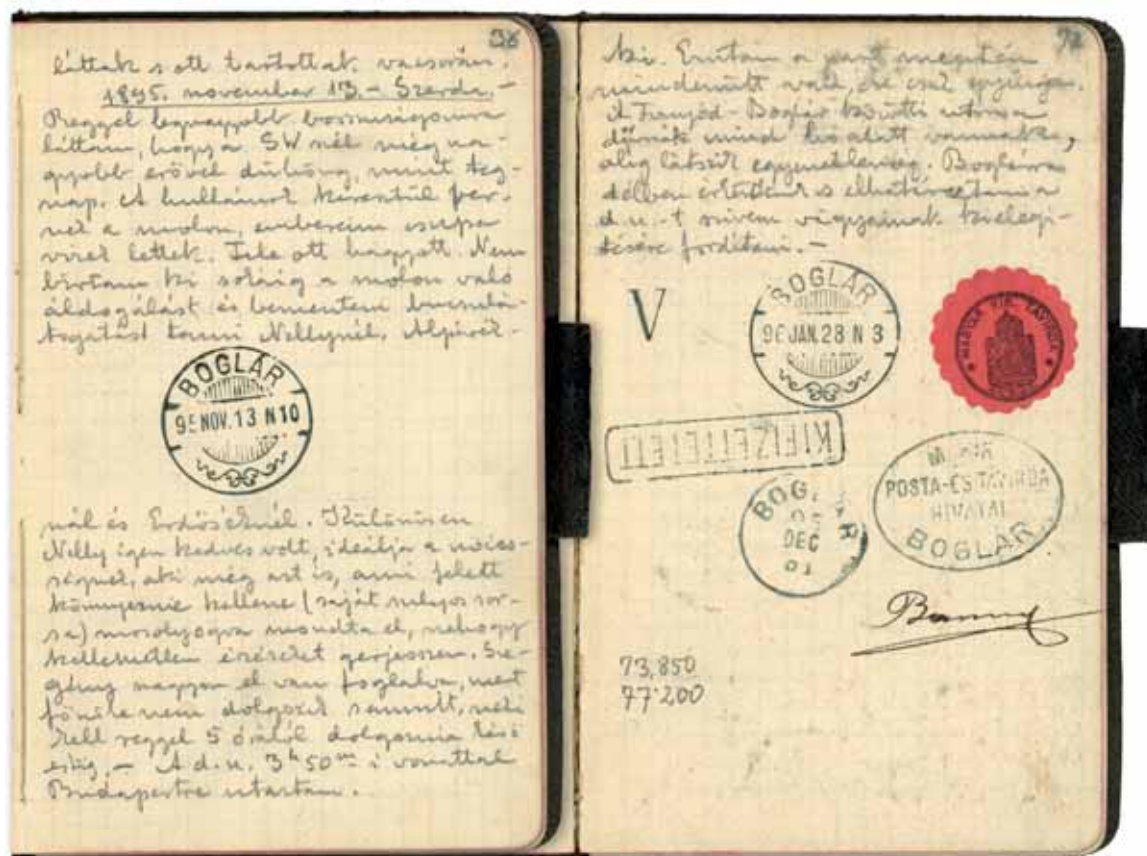 36
láttak s ott tartottak vacsorán.
1895. november 13. – Szerda. –
Reggel legnagyobb bosszúságomra
láttam, hogy a SW szél még na-
gyobb erővel dühöng, mint teg-
nap. A hullámok keresztül
a molon, embereim csupa
vizek lettek. ott hagyott. Nem
bírtam ki sokáig a molon való
áldogálást és bementem búcsúlá-
togatást tenni Nellynél,
BOGLÁR
95 NOV. 13 N 10
nál és Erdőséknél. Különösen
Nelly igen kedves volt, ideálja a nőies-
ségnek, aki még azt is, ami felett
könnyeznie kellene (saját súlyos sor-
sa) mosolyogva mondta el, nehogy
kellemetlen érzéseket gerjesszen. Sze-
gény nagyon el van foglalva, mert
főnöke nem dolgozik semmit, neki
kell reggel 5 órától dolgoznia késő
estig. – A d. u. 3h 50m i vonattal
Budapestre utaztam.
ki. a part mentén
mindenütt
A Fonyód – Boglár közötti
mind víz alatt vannak,
alig látszik egyenetlenség. Boglárra
délben érkeztünk s elhatároztam a
d. u. -t szívem vágyainak kielégí-
tésére fordítani. –
V
BOGLÁR
96 JAN. 28 N 3
MAGYAR KIR. TÁVIRDA
KIFIZETTETETT
BOGLÁR
DEC
10
POSTA-ÉS TÁVIRDA
HIVATAL
BOGLÁR
73,850
77·200